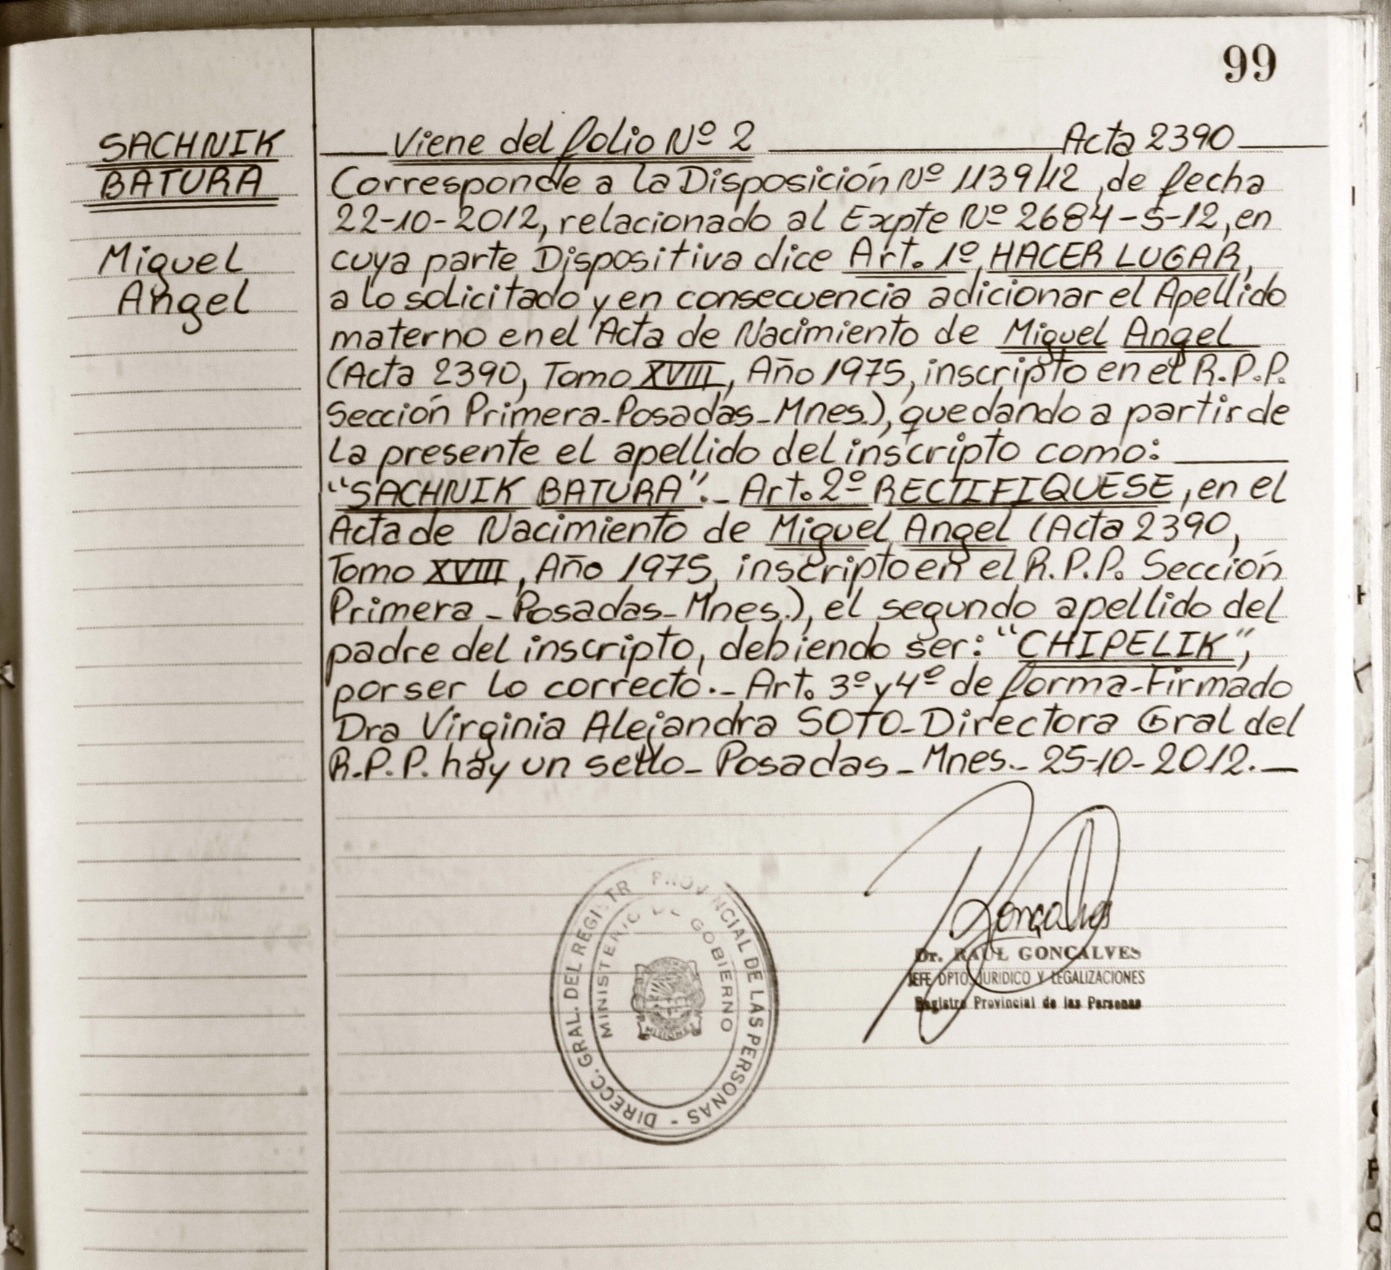 99
SACHNIK
BATURA
Miguel
Angel
Viene del folio Nº 2 Acta 2390
Corresponde a la Disposición Nº 1139/12, de fecha
22-10-2012, relacionado al Expte Nº 2684-S-12, en
cuya parte Dispositiva dice Art. 1º HACER LUGAR,
a lo solicitado y en consecuencia adicionar el Apellido
materno en el Acta de Nacimiento de Miguel Angel
(Acta 2390, Tomo XVIII, Año 1975, inscripto en el R.P.P.
Sección Primera-Posadas-Mnes.), quedando a partir de
la presente el apellido del inscripto como:
"SACHNIK BATURA".- Art. 2º RECTIFIQUESE, en el
Acta de Nacimiento de Miguel Angel (Acta 2390,
Tomo XVIII, Año 1975, inscripto en el R.P.P. Sección
Primera - Posadas - Mnes.), el segundo apellido del
padre del inscripto, debiendo ser: "CHIPELIK",
por ser lo correcto.- Art. 3º y 4º de forma-Firmado
Dra Virginia Alejandra SOTO-Directora Gral del
R.P.P. hay un sello- Posadas - Mnes.- 25-10-2012.-
Gonçalves
Dr. RAUL GONCALVES
JEFE DPTO JURIDICO Y LEGALIZACIONES
Registro Provincial de las Personas
DIRECC. GRAL. DEL REGISTR PROVINCIAL DE LAS PERSONAS -
MINISTERIO DE GOBIERNO